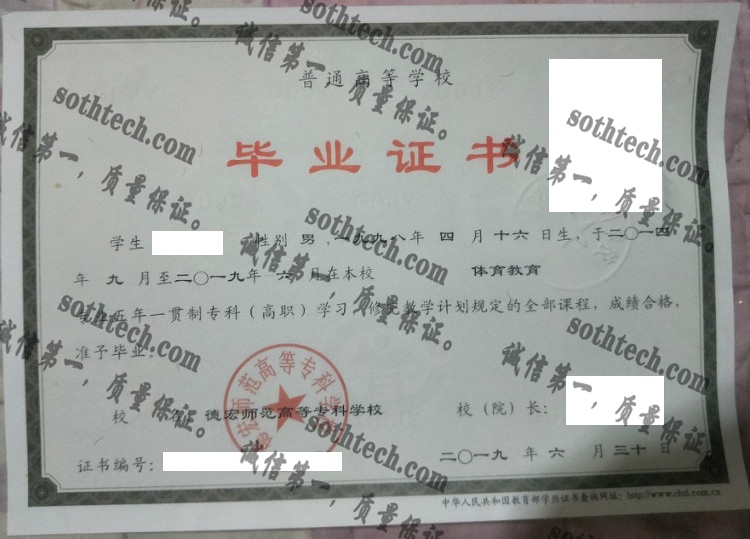 普通高等学校
毕业证书
学生 性别 男，一九九八年 四 月 十六 日生，于二〇一四
年 九 月至二〇一九年 六 月在本校 体育教育
五年一贯制专科（高职）学习，修完教学计划规定的全部课程，成绩合格，
准予毕业。
校 名：德宏师范高等专科学校 校（院）长：
证书编号： 二〇一九 年 六 月 三十 日
中华人民共和国教育部学历证书查询网址：http://www.chsi.com.cn
德宏师范高等专科学校
sothtech.com
诚信第一，质量保证。
sothtech.com
诚信第一，质量保证。
sothtech.com
诚信第一，质量保证。
sothtech.com
诚信第一，质量保证。
sothtech.com
诚信第一，质量保证。
sothtech.com
诚信第一，质量保证。
sothtech.com
诚信第一，质量保证。
sothtech.com
诚信第一，质量保证。